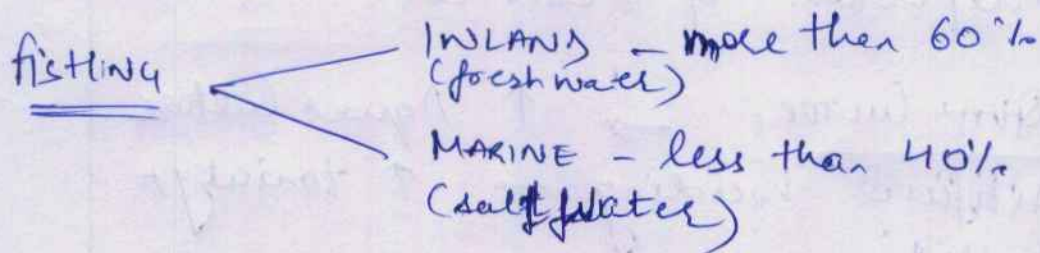 FISHING
INLAND - more than 60%
(freshwater)
MARINE - less than 40%
(salt water)